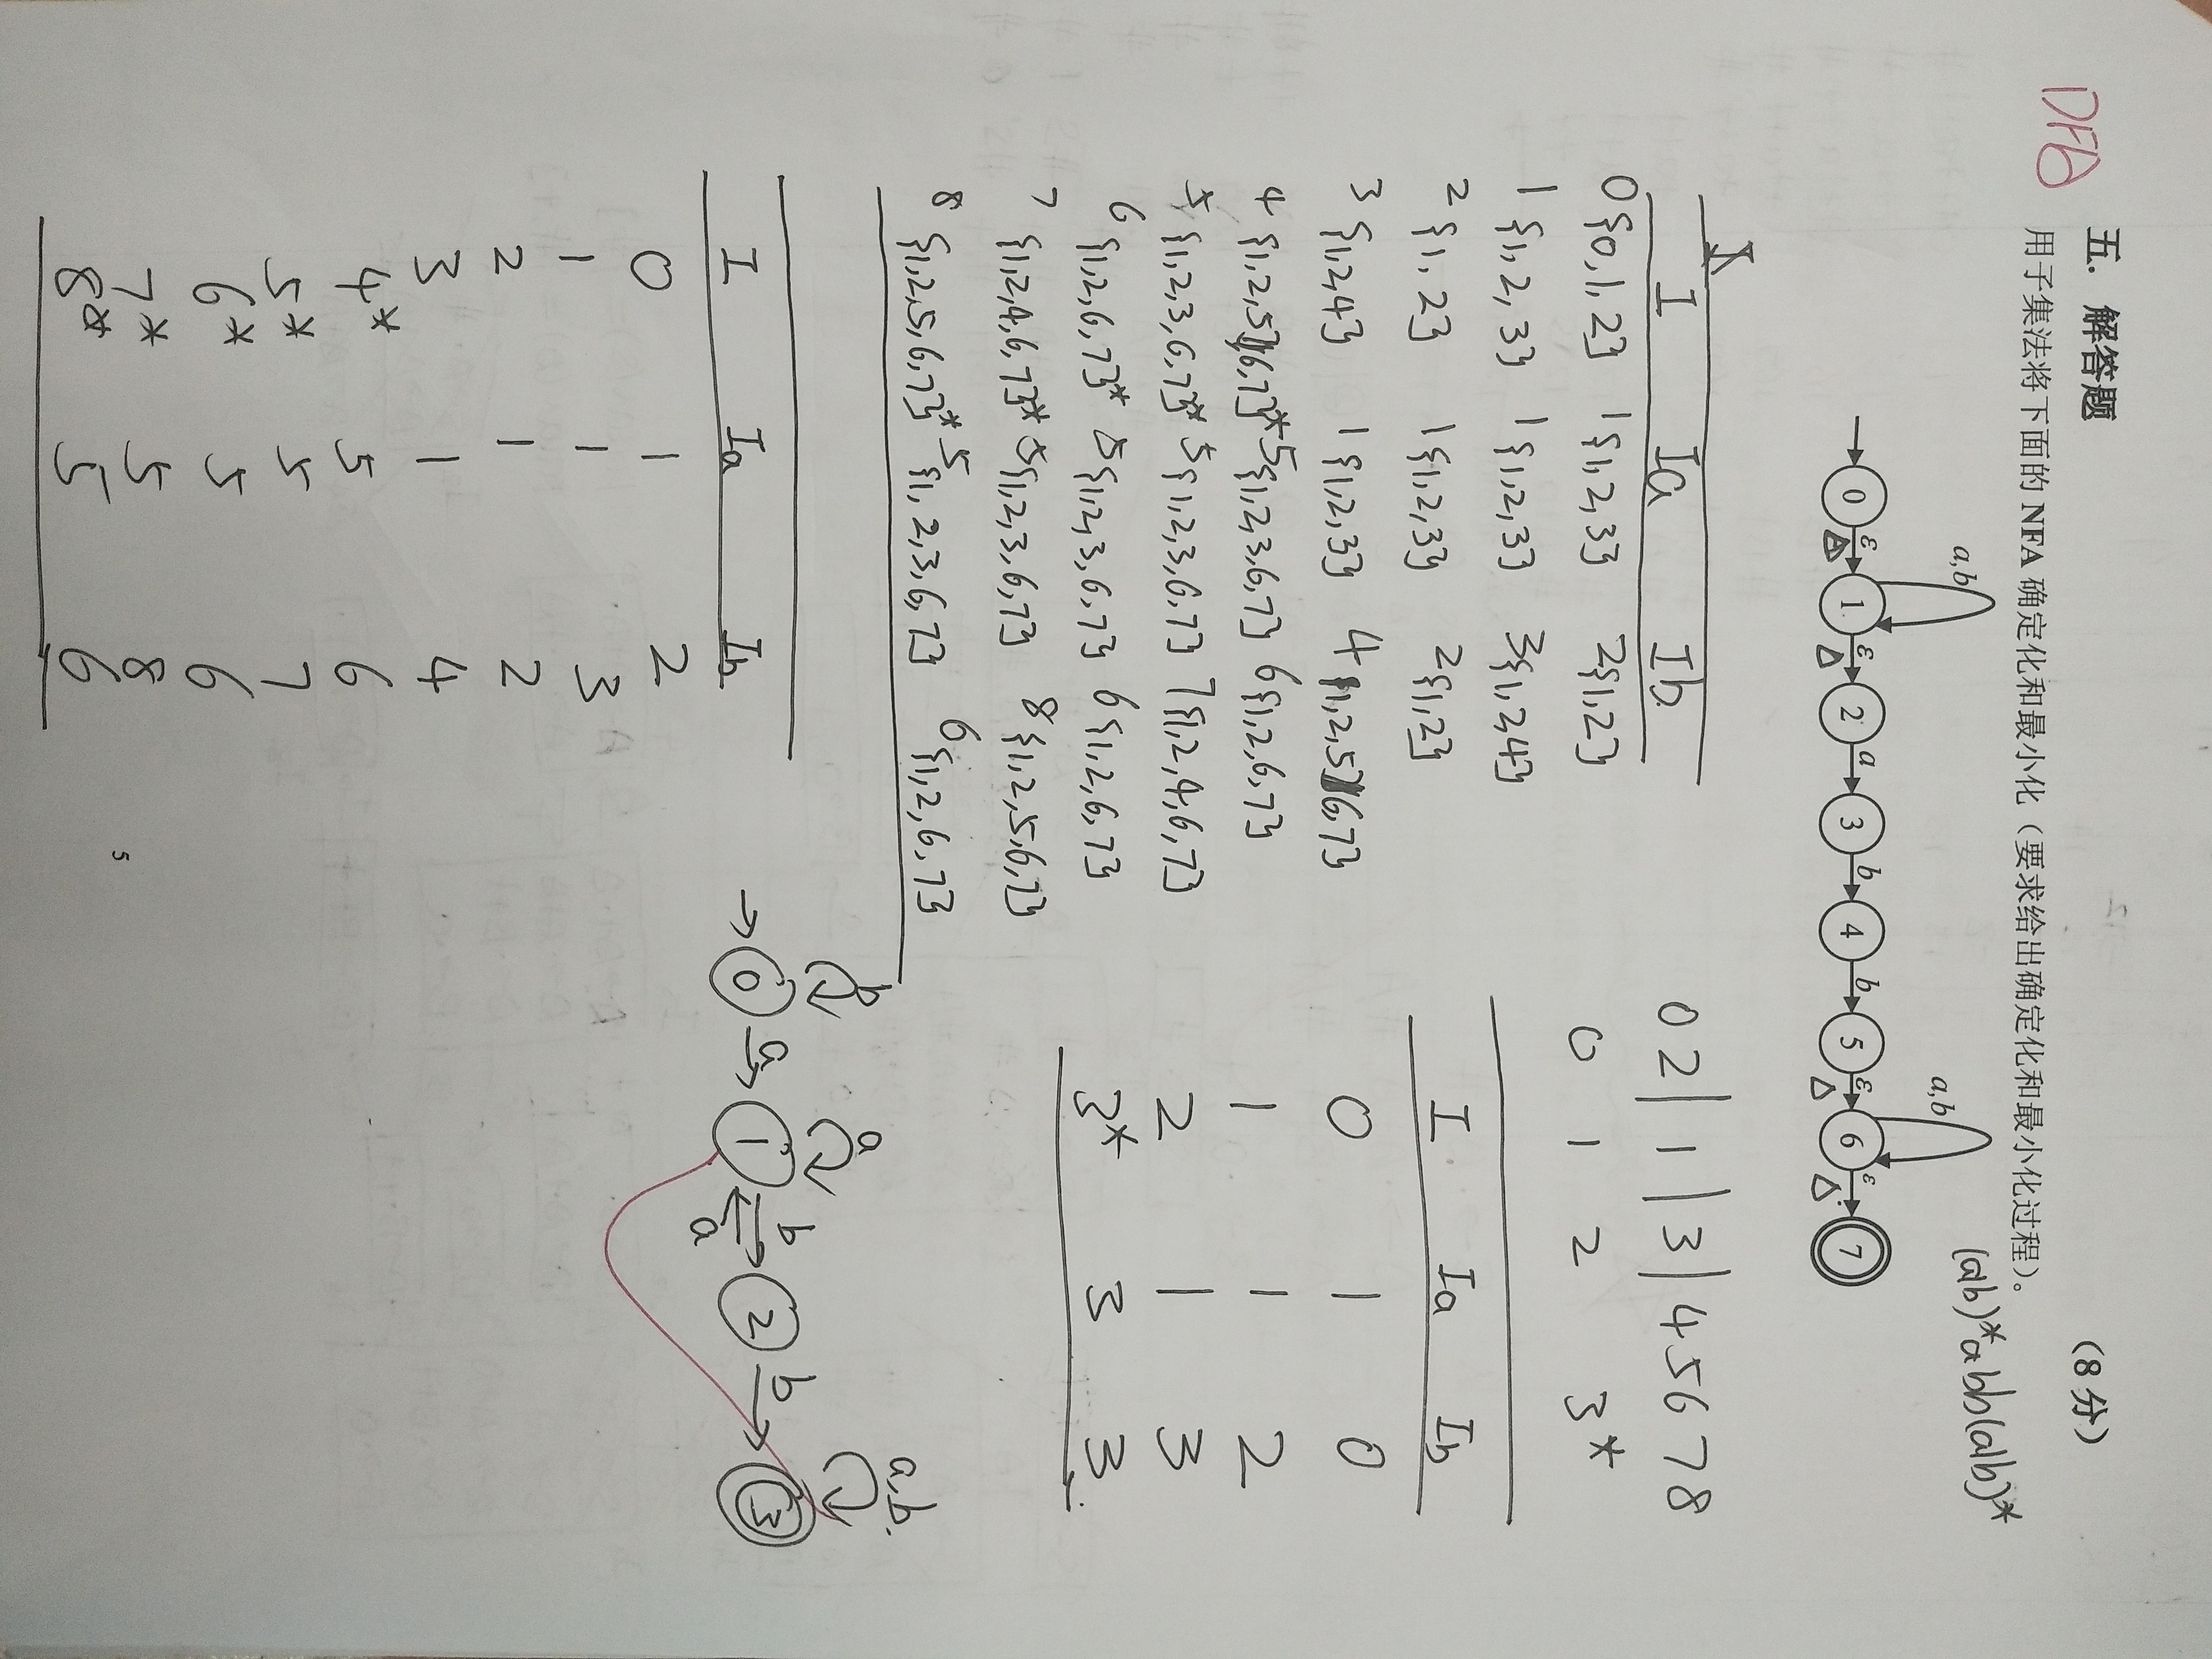 DFA
五. 解答题 (8分)
用子集法将下面的 NFA 确定化和最小化（要求给出确定化和最小化过程）。
(a|b)*abb(a|b)*
a,b a,b
0 ε 1 ε 2 a 3 b 4 b 5 ε 6 ε 7
I Ia Ib
0 {0,1,2} 1 {1,2,3} 2 {1,2}
1 {1,2,3} 1 {1,2,3} 3 {1,2,4}
2 {1,2} 1 {1,2,3} 2 {1,2}
3 {1,2,4} 1 {1,2,3} 4 {1,2,5,6,7}
4 {1,2,5,6,7}* 5 {1,2,3,6,7} 6 {1,2,6,7}
5 {1,2,3,6,7}* 5 {1,2,3,6,7} 7 {1,2,4,6,7}
6 {1,2,6,7}* 5 {1,2,3,6,7} 6 {1,2,6,7}
7 {1,2,4,6,7}* 5 {1,2,3,6,7} 8 {1,2,5,6,7}
8 {1,2,5,6,7}* 5 {1,2,3,6,7} 6 {1,2,6,7}
I Ia Ib
0 1 2
1 1 3
2 1 2
3 1 4
4* 5 6
5* 5 7
6* 5 6
7* 5 8
8* 5 6
0 2 | 1 | 3 | 4 5 6 7 8
0 1 2 3*
I Ia Ib
0 1 0
1 1 2
2 1 3
3* 3 3
b a a,b.
0 a 1 b 2 b 3
a
5